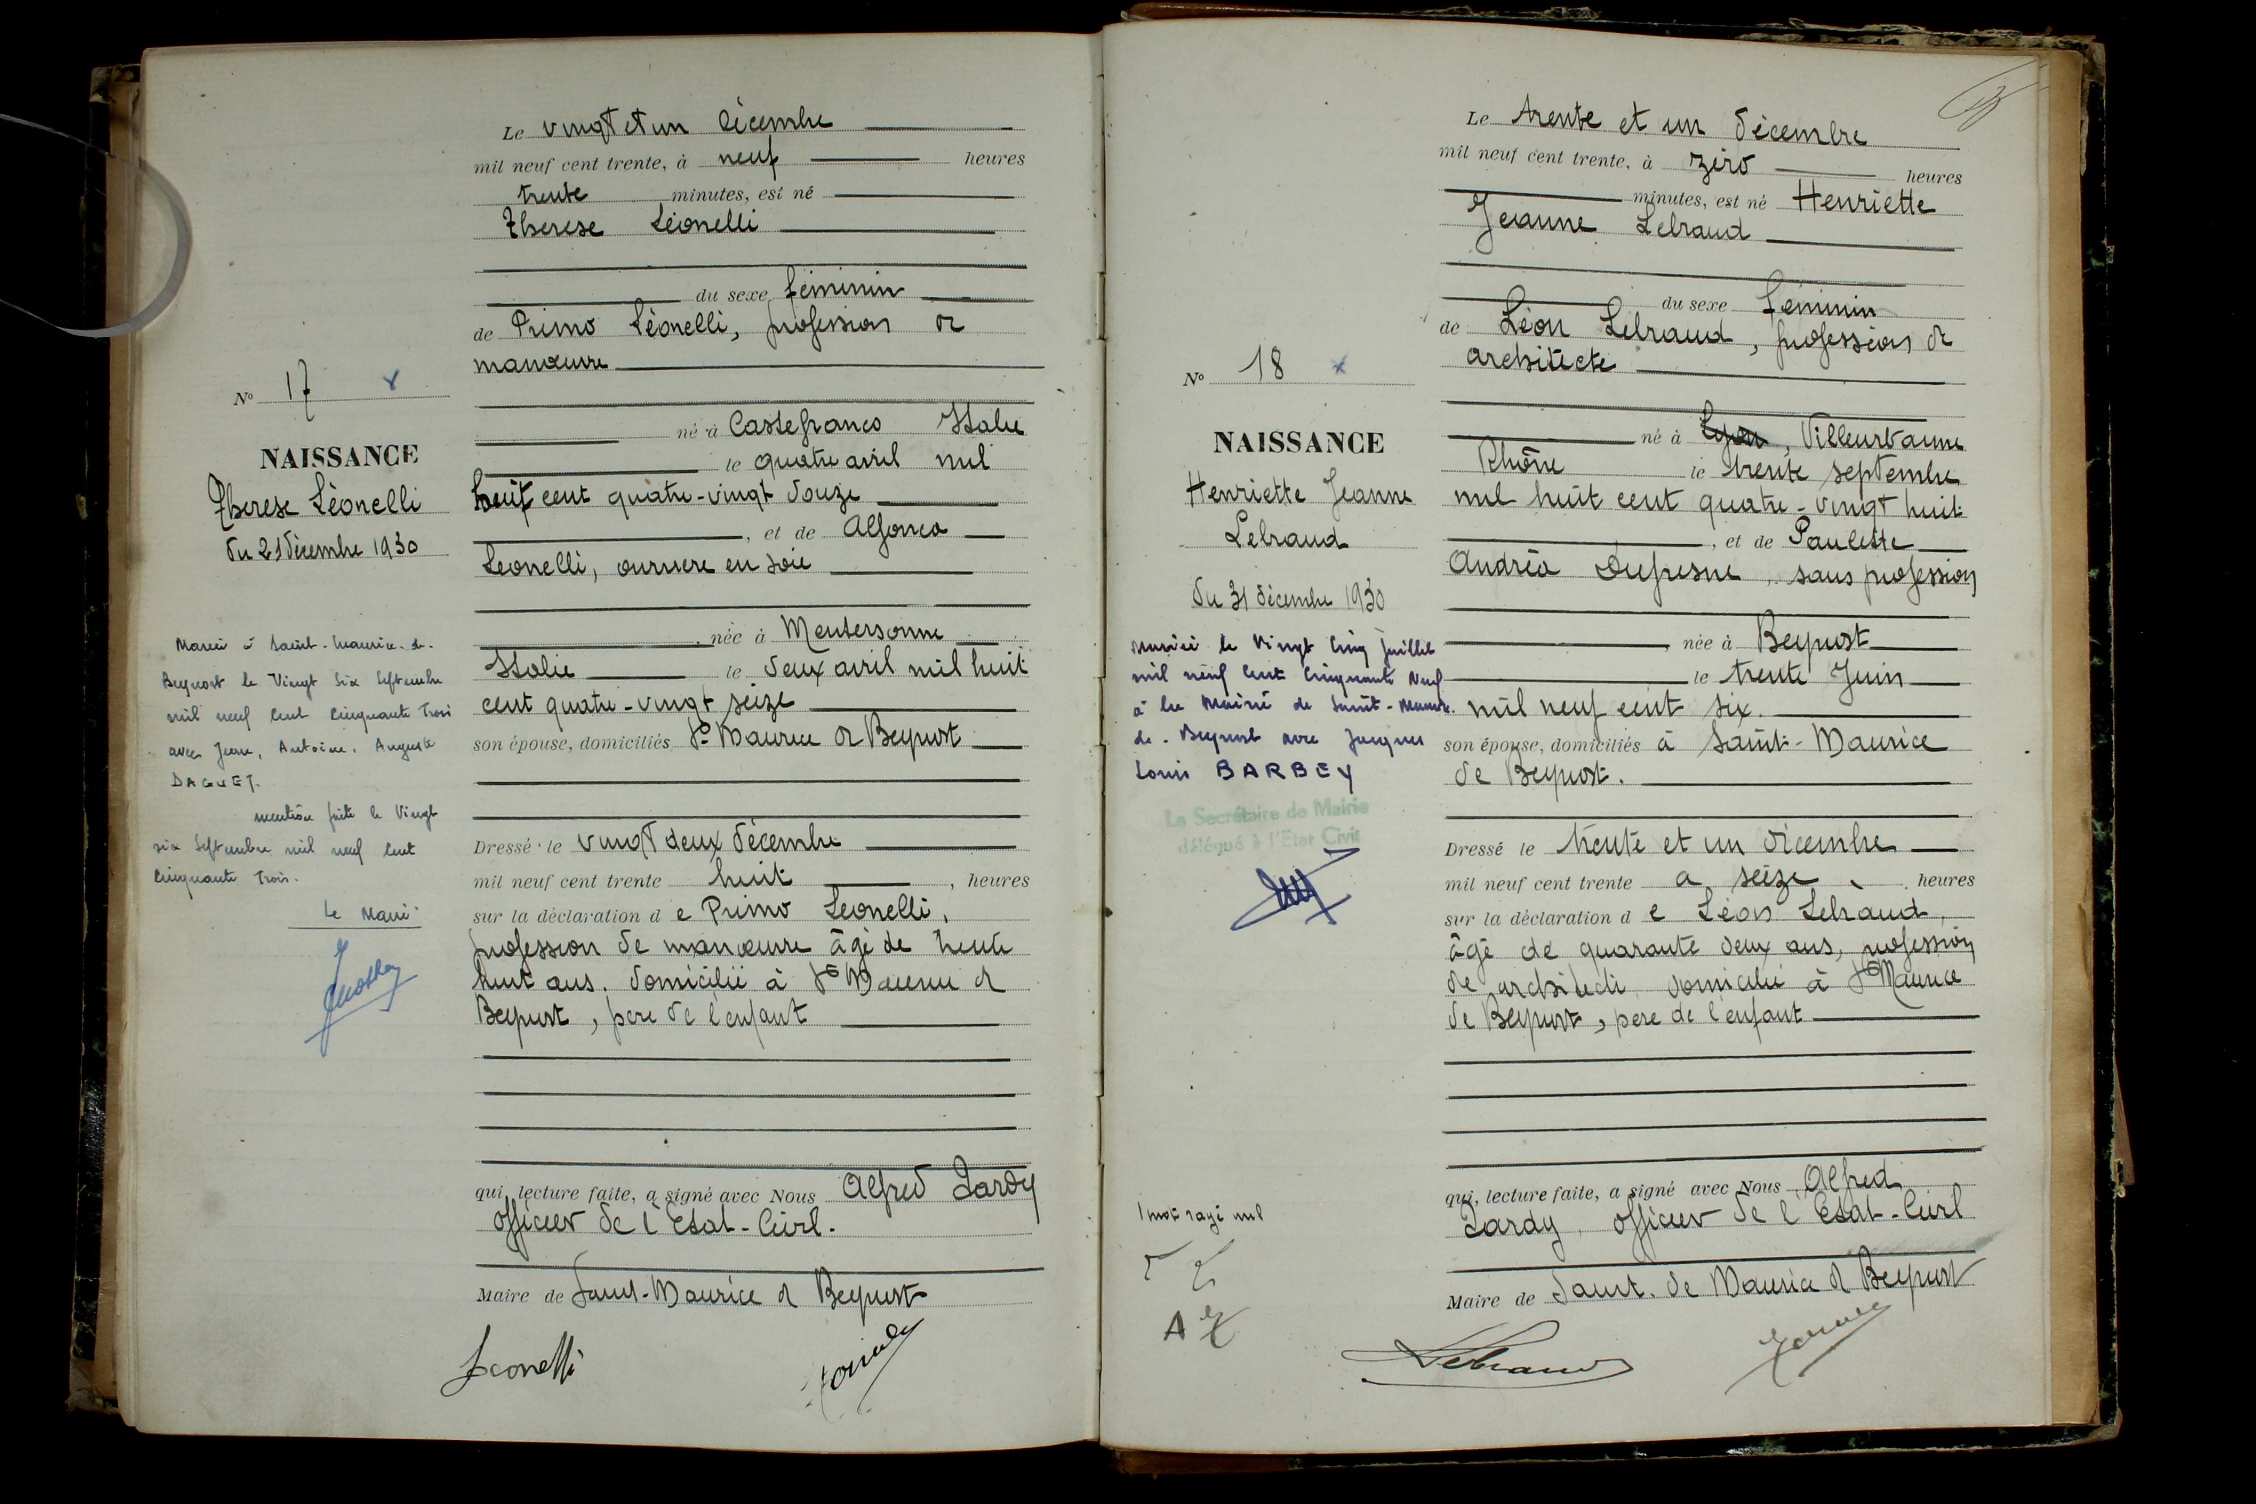 Le vingt et un décembre
mil neuf cent trente, à neuf heures
trente minutes, est né
Therese Léonelli
du sexe féminin
de Primo Léonelli, profession de
manœuvre
N° 17
NAISSANCE
Therese Léonelli
du 21 décembre 1930
né à Castefranco Italie
le quatre avril mil
huit cent quatre-vingt douze
, et de Alfonca
Leonelli, ouvriere en soie
, née à
Italie le deux avril mil huit
cent quatre-vingt seize
son épouse, domiciliés St Maurice de Beynost
Dressé le vingt deux décembre
mil neuf cent trente huit , heures
sur la déclaration d e Primo Leonelli,
profession de manœuvre âgé de trente
huit ans. domicilié à St Maurice de
Beynost, père de l'enfant
qui, lecture faite, a signé avec Nous Alfred Tardy
officier de l'Etat-Civil.
Maire de Saint-Maurice de Beynost
Leonelli
Mariée à Saint-Maurice-de-
Beynost le Vingt Six Septembre
mil neuf cent cinquante Trois
avec Jean, Antoine, Auguste
DAGUET.
mention faite le Vingt
six Septembre mil neuf cent
cinquante Trois.
Le Maire
Le trente et un décembre
mil neuf cent trente, à zéro heures
minutes, est né Henriette
Jeanne Lebraud
du sexe féminin
de Léon Lebraud, profession de
architecte
N° 18
NAISSANCE
Henriette Jeanne
Lebraud
du 31 décembre 1930
né à Lyon, Villeurbanne
Rhône le trente septembre
mil huit cent quatre-vingt huit
, et de Paulette
Andréa Dufresne, sans profession
née à Beynost
le trente Juin
mil neuf cent six.
son épouse, domiciliés à Saint-Maurice
de Beynost.
Dressé le trente et un décembre
mil neuf cent trente a seize heures
sur la déclaration d e Léon Lebraud,
âgé de quarante deux ans, profession
de architecte domicilié à St Maurice
de Beynost, père de l'enfant
qui, lecture faite, a signé avec Nous Alfred
Tardy, officier de l'Etat-Civil
Maire de Saint. de Maurice de Beynost
Lebraud
Mariée le Vingt Cinq Juillet
mil neuf cent cinquante neuf
à la Mairie de Saint-Maurice
de-Beynost avec Jacques
Louis BARBEY
Le Secrétaire de Mairie
délégué à l'Etat Civil
1 mot rayé nul